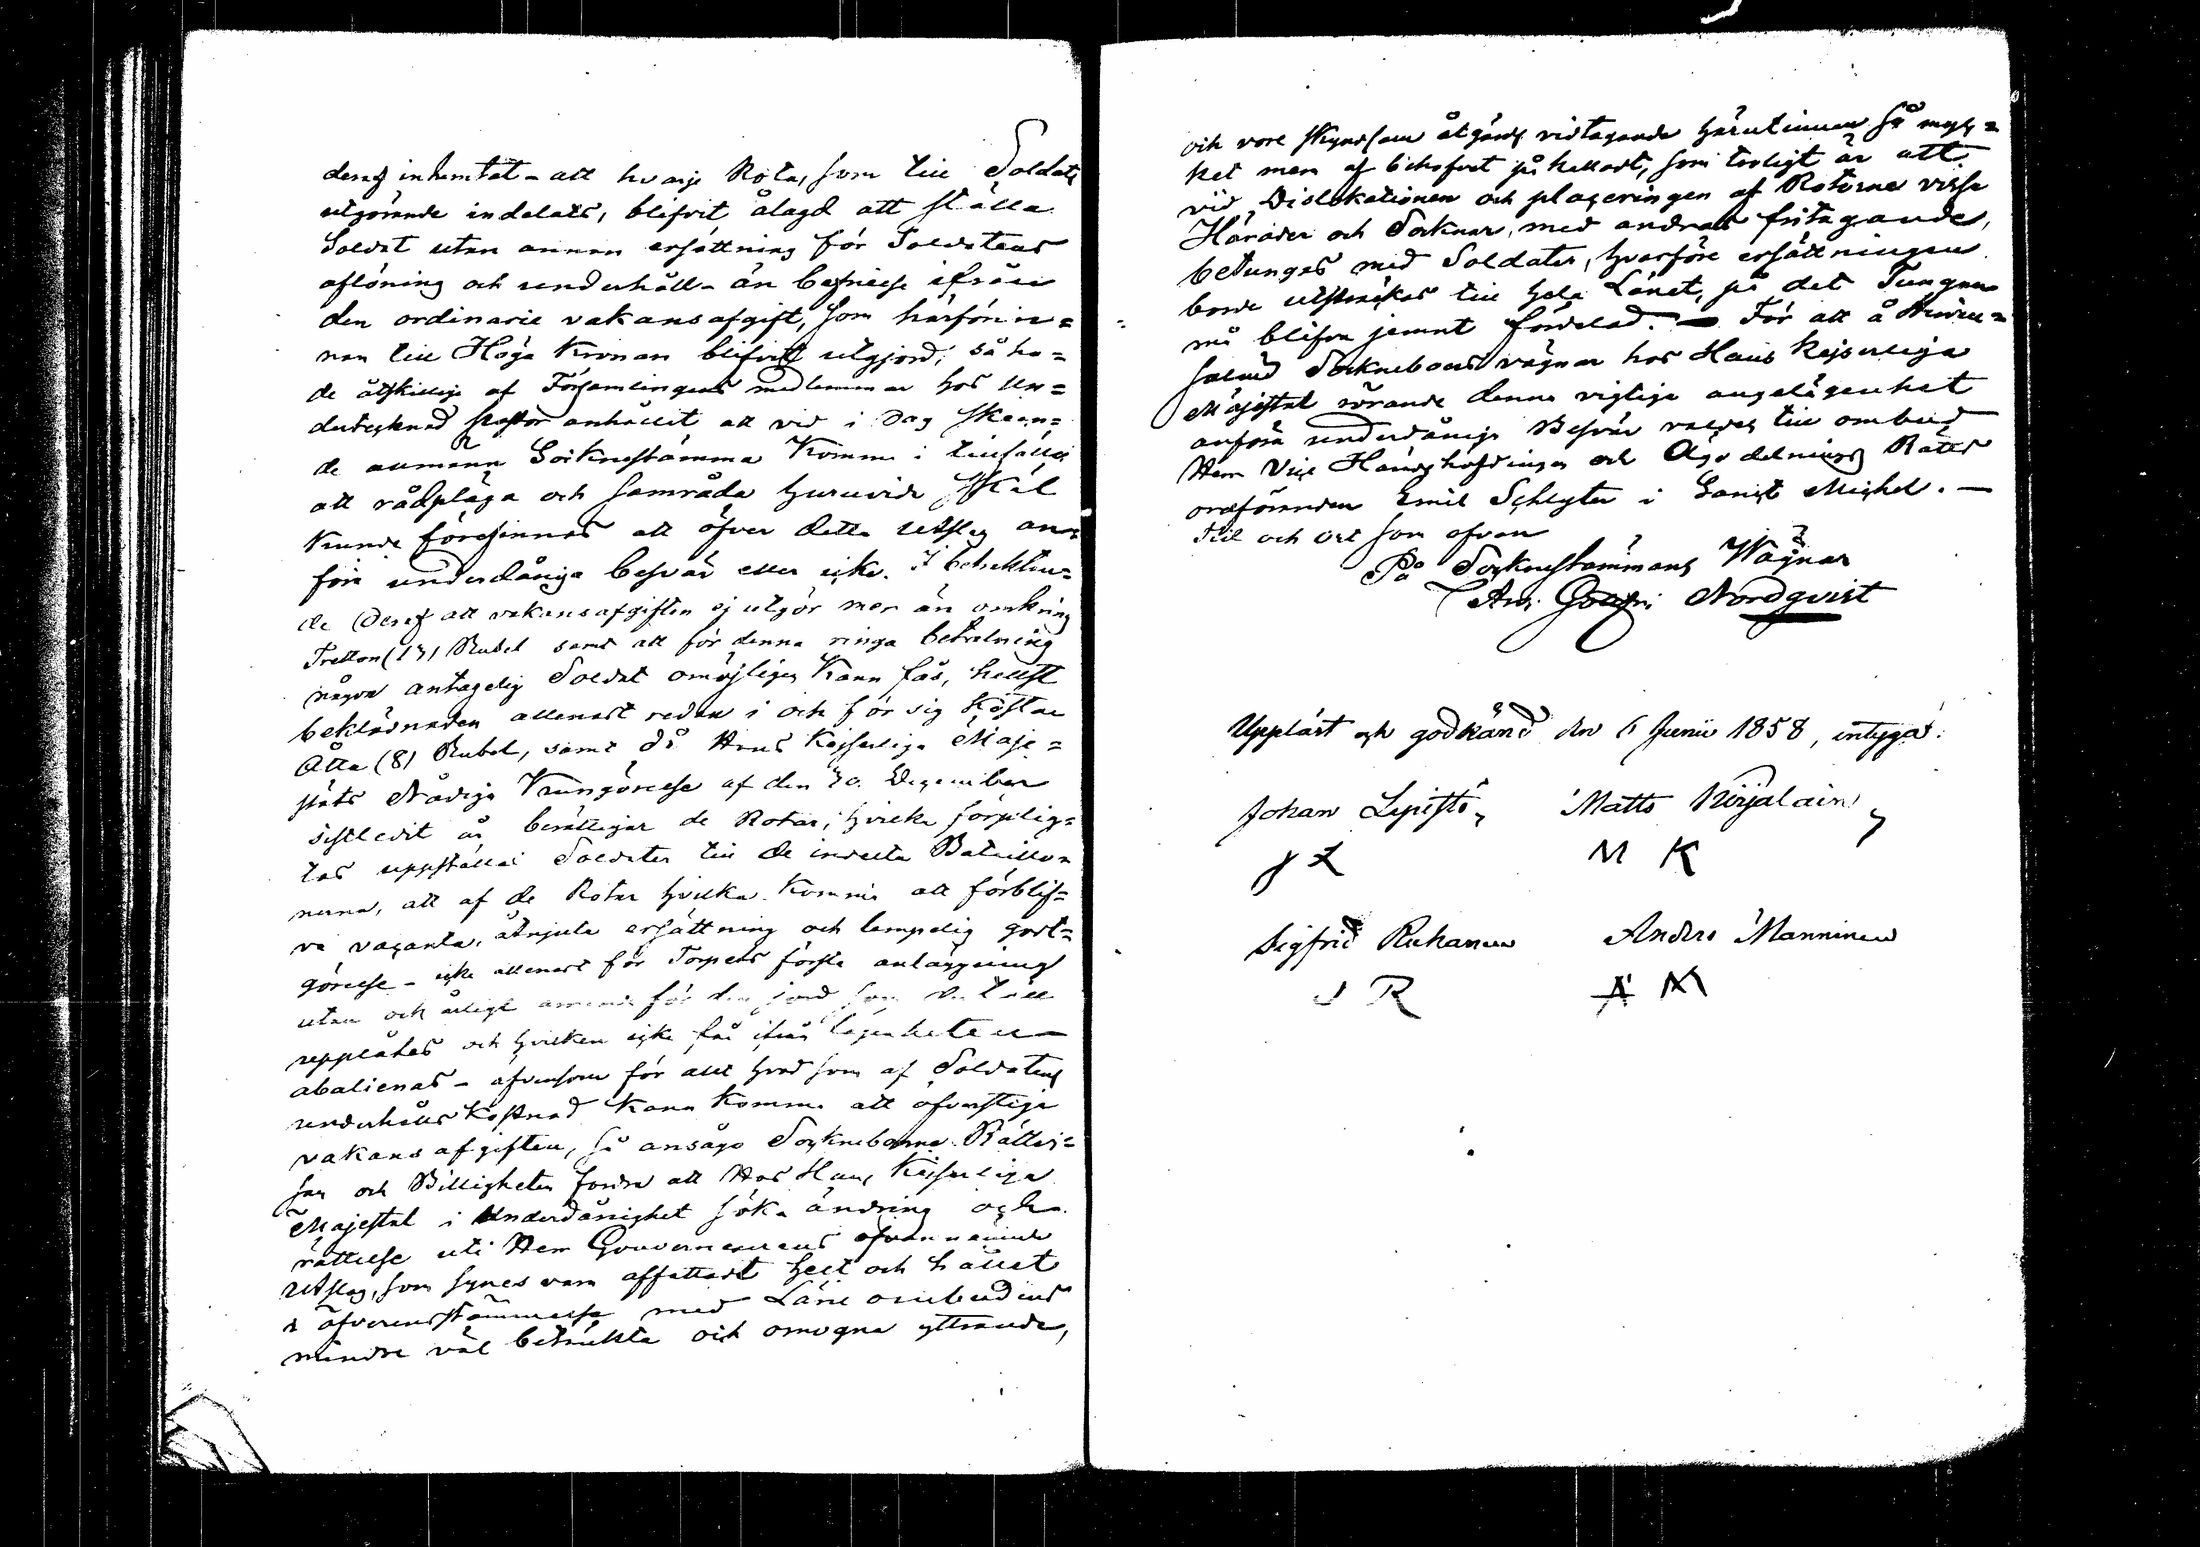 deraf inhemtat - att hvarje Rota, som till Soldats
utgörande indelats, blifvit ålagd att ställa
Soldat utan annan ersättning för Soldatens
aflöning och underhåll - än befrielse ifrån
den ordinarie vakansafgift, som härförin=
nan till Höga Kronan blifvit utgjord; så ha=
de åtskillige af Församlingens medlemmar hos un=
dertecknad Pastor anhållit att vid i dag skeen=
de allmänn Socknestämma komma i tillfälle
att rådpläga och samråda huruvida skäl
kunde förefinnas att öfver detta utslag an=
föra underdåniga besvär eller icke. I betraktan=
de deraf att vakansafgiften ej utgör mer än omkring
Tretton (13) Rubel samt att för denna ringa betalning
någon antagelig Soldat omöjligen kann fås, helst
beklädnaden allenast redan i och för sig kostar
Åtta (8) Rubel, samt då Hans Kejserliga Maje=
stäts Nådiga Kungörelse af den 30. December
sistledit år berättigar de Rotar, hvilka förplig=
tas uppställa Soldater till de indelta Bataillo=
nerna, att af de Rotar hvilka komma att förblif=
va vacanta, åtnjuta ersättning och lämpelig godt=
görelse - icke allenast för Torpets första anläggning
utan och årligt arrende för den jord som dertill
upplåtes och hvilken icke får ifrån lägenheten
abalienas - äfvensom för allt hvad som af Soldatens
underhålls kostnad kann komma att öfverstiga
vakansafgiften, så ansågo Sockneboerne Rättvi=
san och Billigheten fordra att hos Hans Kejserliga
Majestät i Underdånighet söka ändring och
rättelse uti Herr Gouverneurens ofvannämde
utslag, som synes vara affattadt helt och hållet
i öfverensstämmelse med Läne ombudens
mindre väl betänkta och omogna yttrande,
och vore skyndsam åtgärds vidtagande härutinnan så myc=
ket mer af behofvet påkalladt, som troligt är att
vid Dislokationen och placeringen af Roterne vissa
Härader och Socknar, med andras fritagande,
betungas med Soldater, hvarföre ersättningen
borde utsträckas till hela Länet, på det Tungan
må blifva jemnt fördelad. - För att å
Socknebons vägnar hos Hans Kejserliga
Majestät rörande denna vigtiga angelägenhet
anföra underdåniga Besvär valdes till ombud
Herr Vice Häradshöfdingen och Ägodelnings Rätts
ordföranden Emil Schlyter i Sanct Michel. -
Tid och ort som ofvan
På Socknestämmans Wägnar
And. Gottfri Nordqvist
Uppläst och godkänd den 6 Junii 1858, intyga:
Johan Lepistö, Matts Kirjalain,
J L M K
Sigfrid Rukanen Anders Manninen
S R A M